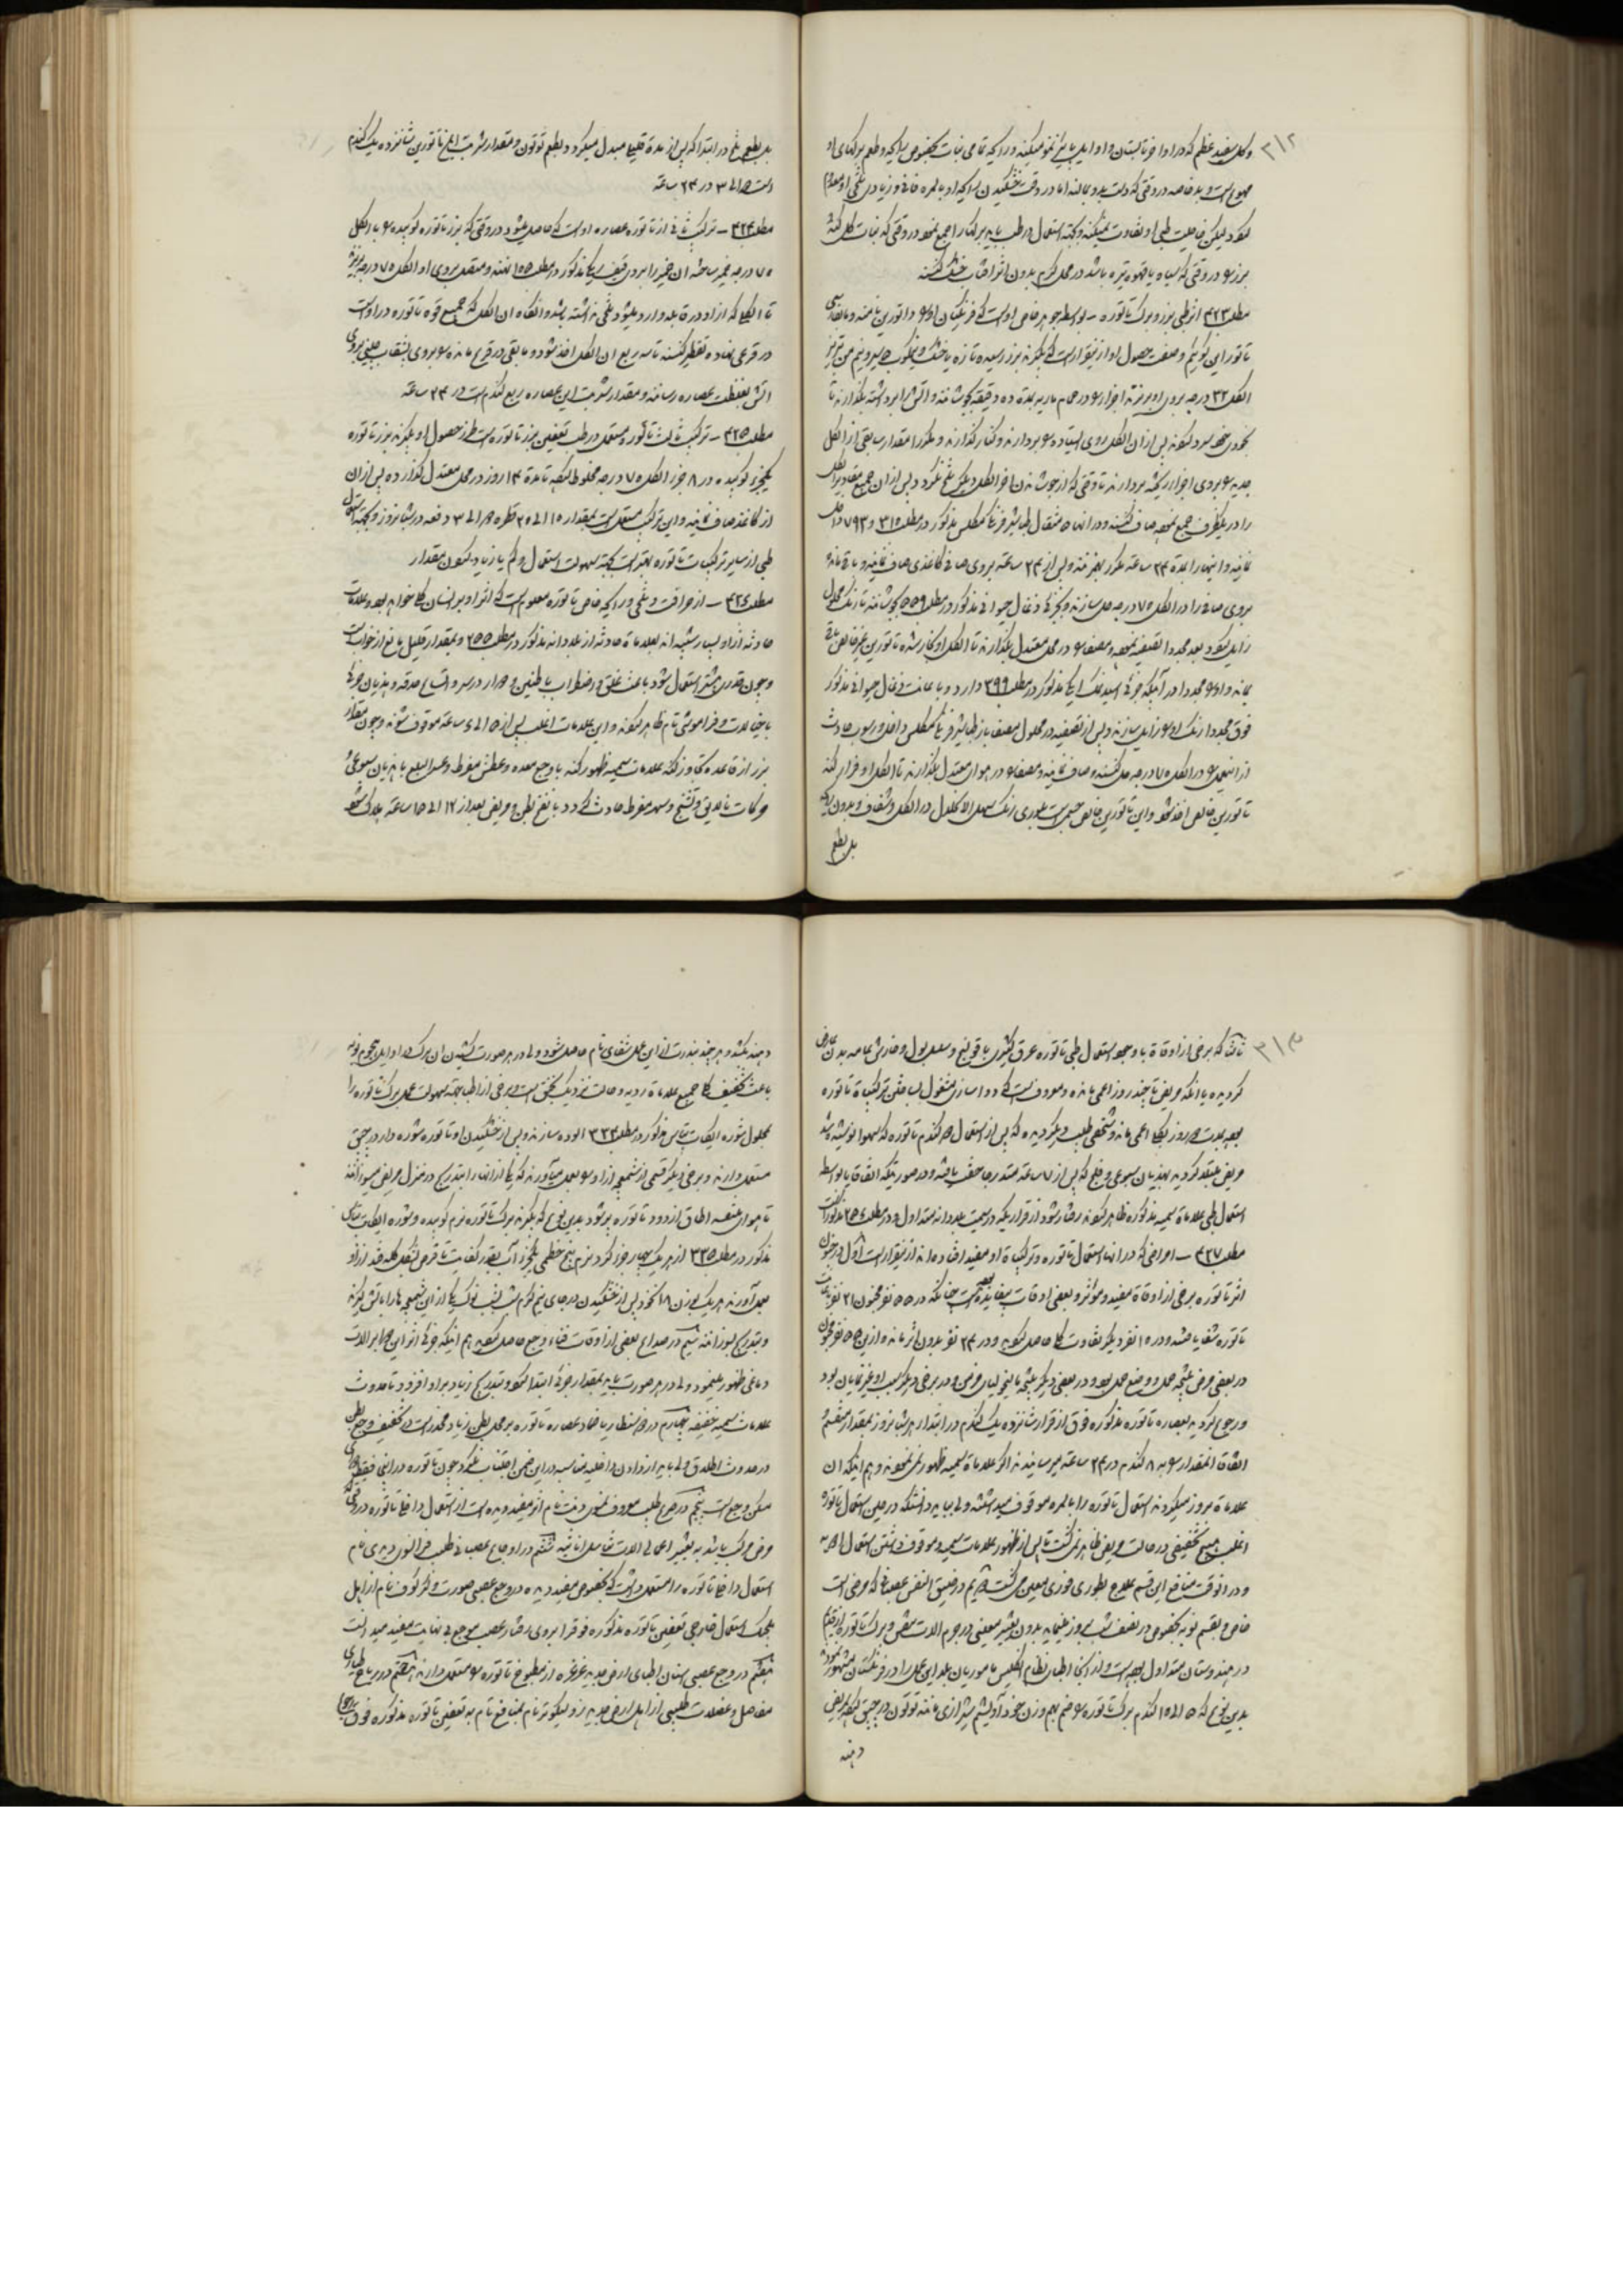 ۳۱۲
وکل سفید عظم که در اواخر تابستان و اوایل پاییز نمو میکند و رایحه تمامی نبات بخصوص رایحه و طعم برکهای او
مهوع است و بد خاصه در وقتی که دست بدو بمالند اما در وقت خشکیدن رایحه او بالمره فانی و زیادی تلخی او معدوم
شود لیکن خاصیت طبی او تفاوت نمیکند و بجهة استعمال در طب باید برکها را جمع نمود در وقتی که نبات کل کند
بزر در وقتی که سیاه یا قهوه تیره باشد در محل کرم بدون اثر افتاب خشک کنند
مطلب ۴۲۳ اثر طبی بزر و برک تاتوره - بواسطه جوهر خاص اوست که فرنکیان او را داتورین نامند و ما بفارسی
تاتورین کوئیم و صفت حصول او ازینقرار است که بکیرند بزر رسیده تازه یا خشک و نیکوب
الکل ۳۲ درجه بروی او بریزند اجزا را در حمام ماریه بمدة ده دقیقه بجوشانند و اتش را برداشته بگذارند تا
بخودی خود سرد شود پس از ان الکل روی ایستاده را بردارند و کنار گذارند و مکرر مقدار سابقی از الکل
جدید بروی اجزا ریخته بردارند تا وقتی که از جوشاندن اخر الکل دیگر تلخ نکردد پس از ان جمیع مقادیر الکل
را در یکظرف جمع نموده صاف کنند و در انها ۵ مثقال طباشیر فرنکی مکلس مذکور در مطلب ۳۱۵ و ۷۹۳ داخل
نمایند و اینها را بمدة ۲۴ ساعة مکرر بهم زنند و پس از ۲۴ ساعة بروی صافی کاغذی صاف نمایند و باقی مانده
بروی صافی را در الکل ۷۵ درجه حل سازند و بجزئی ذغال حیوانی مذکور در مطلب ۵۵۹ بجوشانند تا رنک محلول
زایل شود بعد مجددا تصفیه نموده و مصفی را در محل معتدل بگذارند تا الکل او بخار شده تاتورین غیر خالص باقی
بماند و او را مجددا در آبیکه جزئی اسید نمک ابکی مذکور در مطلب ۳۹۹ دارد و با عانت ذغال حیوانی مذکور
فوق مجددا رنک او را زایل سازند و پس از تصفیه در محلول مصفی باز طباشیر فرنکی مکلس داخل و رسوب حادث
از اینعمل را در الکل ۷۵ درجه حل کنند و صاف نمایند و مصفی را در هوای معتدل بگذارند تا الکل او فرار کند
تاتورین خالص اخذ شود و این تاتورین خالص جسمی است بلوری رنک سهل الانحلال در الکل و شفاف و بدون رایحه
بل بطعم
بل بطعم تلخ در ابتدا که پس از مدة قلیلی مبدل میکردد بطعم توتون و مقدار شربت ابلغ تاتورین شانزده یک کندم
است ۲ الی ۳ در ۲۴ ساعة
مطلب ۴۲۴ - ترکیب ثانی از تاتوره عصاره اوست که حاصل میشود در وقتی که بزر تاتوره کوبیده را با الکل
۷۵ درجه خمیر ساخته ان خمیر را بروی قیف ریکا مذکور در مطلب ۱۵۵ نهند و متصل بروی او الکل ۷۵ درجه بریزند
تا الکلی که از او در قابله وارد میشود تلخی نداشته باشد و انکاه ان الکل که جمیع قوه تاتوره در اوست
در قرعی نهاده تقطیر کنند تا سه ربع ان الکل اخذ شود و مابقی در قرع مانده را بروی بشقاب چینی بروی
اتش بغلظت عصاره رسانند و مقدار شربت این عصاره ربع کندم است در ۲۴ ساعة
مطلب ۴۲۵ - ترکیب ثالث تاتوره مستعمل در طب تعفین بزر تاتوره است طرز حصول او بکیرند بزر تاتوره
یکجزء کوبیده در ۸ جزء الکل ۷۵ درجه مخلوط نموده تا مدة ۱۴ روز در محل معتدل گذارده پس از ان
از کاغذ صاف نمایند و این ترکیب مستعمل است بمقدار ۱۵ الی ۲۵ قطره ۲ الی ۳ دفعه در شبانروز و بجهة استعمال
طبی از سایر ترکیبات تاتوره بهتر است بجهة سهولت استعمال و کم یا زیاد نمودن مقدار
مطلب ۴۲۶ - از حرافت و تلخی و رایحه خاص تاتوره معلوم است که اثر او بر انسان کلی خواهد بود و علامات
حادثه از او بسیار شبیه اند بعلامات حادثه از بلادانه مذکور در مطلب ۲۵۵ و بمقدار قلیل مانع از خوابست
و چون قدری بیشتر استعمال شود باعث غلق و اضطراب با طنین و دوار در سر و اتساع حدقه و هذیان جزئی
با خیالات و فراموشی تام ظاهر شوند و این علامات اغلب پس از ۵ الی ۶ ساعة موقوف شوند و چون مقدار
بزر از قاعده تجاوز کند علامات سمیه ظهور کند با وجع معده و عطش مفرط و عسر البلع با هذیان سبوعی
حرکات نالایق و تشنج و سهر مفرط حادث کردد با نفخ بطن و مریض بعد از ۱۲ الی ۱۵ ساعة هلاک شود
۳۱۳
ناشد که برخی از اوقاة با وجود استعمال طبی تاتوره عرق کثیری با قولنج و سلس بول و خارش بعامه بدن عارض
کردیده یا انکه مریض تا چند روز اعمی مانده و معروفست که دواسازی مشغول بساختن ترکیباة تاتوره
بوده بمدت ۲ روز بکلی اعمی ماند و شخصی طبیب دیگر دیده که پس از استعمال ۲ کندم تاتوره که سهوا نوشیده شد
مریض مبتلا کردید بهذیان سبوعی و فلج که پس از ۷ ساعة متدرجا خفت یافته و در صورتیکه اتفاقا بواسطه
استعمال طبی علاماة سمیه مذکوره ظاهر شوند رفتار شود از قراریکه در سمیت بلادانه متداول و در مطلب ۲۵۶ مذکور است
مطلب ۴۲۷ - امراضی که در انها استعمال تاتوره و ترکیباة او مفید افتاده اند ازینقرار است اول در جنون
اثر تاتوره برخی از اوقاة مفید و مؤثر و بعضی اوقات بیفایده بوده است چنانکه در ۵۵ نفر مجنون ۲۱ نفر باثر
تاتوره شفا یافتند و در ۱۰ نفر دیگر تفاوت کلی حاصل شد و در ۲۴ نفر بدون اثر ماند و ازین ۵۵ نفر مجنون
در بعضی مرض نتیجه حمل و وضع حمل بود و در بعضی دیگر نتیجه مالیخولیای مرضی و در برخی دیگر سبب او غیر نمایان بود
و رجوع کردند بعصاره تاتوره مذکوره فوق از قرار شانزده یک کندم در ابتدا در هر شبانروز بمقدار منقسم
اتفاقا انمقدار را به ۸ کندم در ۲۴ ساعة میرسانیدند اکر علاماة سمیه ظهور نمی نمودند و هم اینکه ان
علاماة بروز میکردند استعمال تاتوره را بالمره موقوف میداشتند ولی باید دانست که در حین استعمال تاتوره
اغلب هیچ تخفیفی در حالت مریض ظاهر نمی کشت تا پس از ظهور علامات سمیه و موقوف داشتن استعمال او
و در انوقت منافع این قسم علاج بطوری فوری معین می کشت دویم در ضیق النفس عصبانی که مرضی است
خاص و بقسم نوبه بخصوص در نصف شب بروز مینماید بدون تغییر معینی در جرم الات تنفس و برک تاتوره از قدیم
در هندوستان متداول بوده است و از انجا اطباء نظام انکلیس مامور بان بلد این عمل را در فرنکستان مشهور نمودند
بدین نوع که ۵ الی ۱۵ کندم برک تاتوره را ضم بهم وزن خود آویشم شیرازی مانند توتون در چپق نموده بمریض
دهند
دهند بکشد و هر چند بندرت از این عمل شفای تام حاصل شود ولی در هر صورت کشیدن ان برک در اوایل هجوم نوبه
باعث تخفیف کلی جمیع علاماة ردیه و حالت نزدیک بخفگی است و برخی از اطبا بجهة سهولت عمل برک تاتوره را
بمحلول شوره ایکات پتاس مذکور در مطلب ۳۳۴ الوده سازند و پس از خشکیدن او تاتوره شوره دار در چپق
مستعمل دارند و برخی دیگر قسمی از شمعچه از او بعمل میآورند که یکی از انها را بتدریج در منزل مریض میسوزانند
تا هوای متنفسه اطاق از دود تاتوره پر شود بدین نوع که بکیرند برک تاتوره نرم کوبیده و شوره ایکات پتاس
مذکور در مطلب ۳۳۵ از هر یک چهار جزء کرد نرم بیخ خطمی یکجزء آب بقدر کفایت تا قرص بشکل کله قند از او
بعمل آورند هر یک بوزن ۱۸ نخود پس از خشکیدن در جای نیم کرم شب نوک یکی از این شمعچه ها را باتش بکیرند
و بتدریج بسوزانند سیم در صداع بعضی از اوقات فناء وجع حاصل شود هم اینکه جزئی اثر این دوا بر الات
دماغی ظهور مینمود ولی در هر صورت باید بمقدار جزئی ابتدا نمود و بتدریج زیاد بر او افزود تا حدوث
علامات سمیه خفیفه چهارم در ضماد عصاره تاتوره بر محل بطن زیاد مخدر است در تخفیف وجع بطن
در حدوث اطلاق ولی باید از دادن داخلیه در این ضمن اجتناب نمود چون تاتوره در این فقط برای
مسکن وجع است پنجم در صرع طبیب معروف تام اثر مفید دیده است از استعمال داخلی تاتوره در وقتی که
مرض مرکب باشد به تغییر اعمال الات تناسل اناثیه ششم در اوجاع عصبانی طبیب فرانسوی نام
استعمال داخلی تاتوره را مستعمل داشت که بخصوص مفید دیده در وجع عصبی صورت و کرکوف نام از اهل
بلجیک استعمال خارجی تعفین تاتوره مذکوره فوق را بروی رفتار عصب موجع بی نهایت مفید میدانست
هفتم در وجع عصبی اسنان اطبای ارض جدید غرغره از مطبوخ تاتوره را مستعمل دارند هشتم در ریاح
مفاصل و عضلات طبیبی از اهل ارض جدید نام بمنافع تام به تعفین تاتوره مذکوره فوق